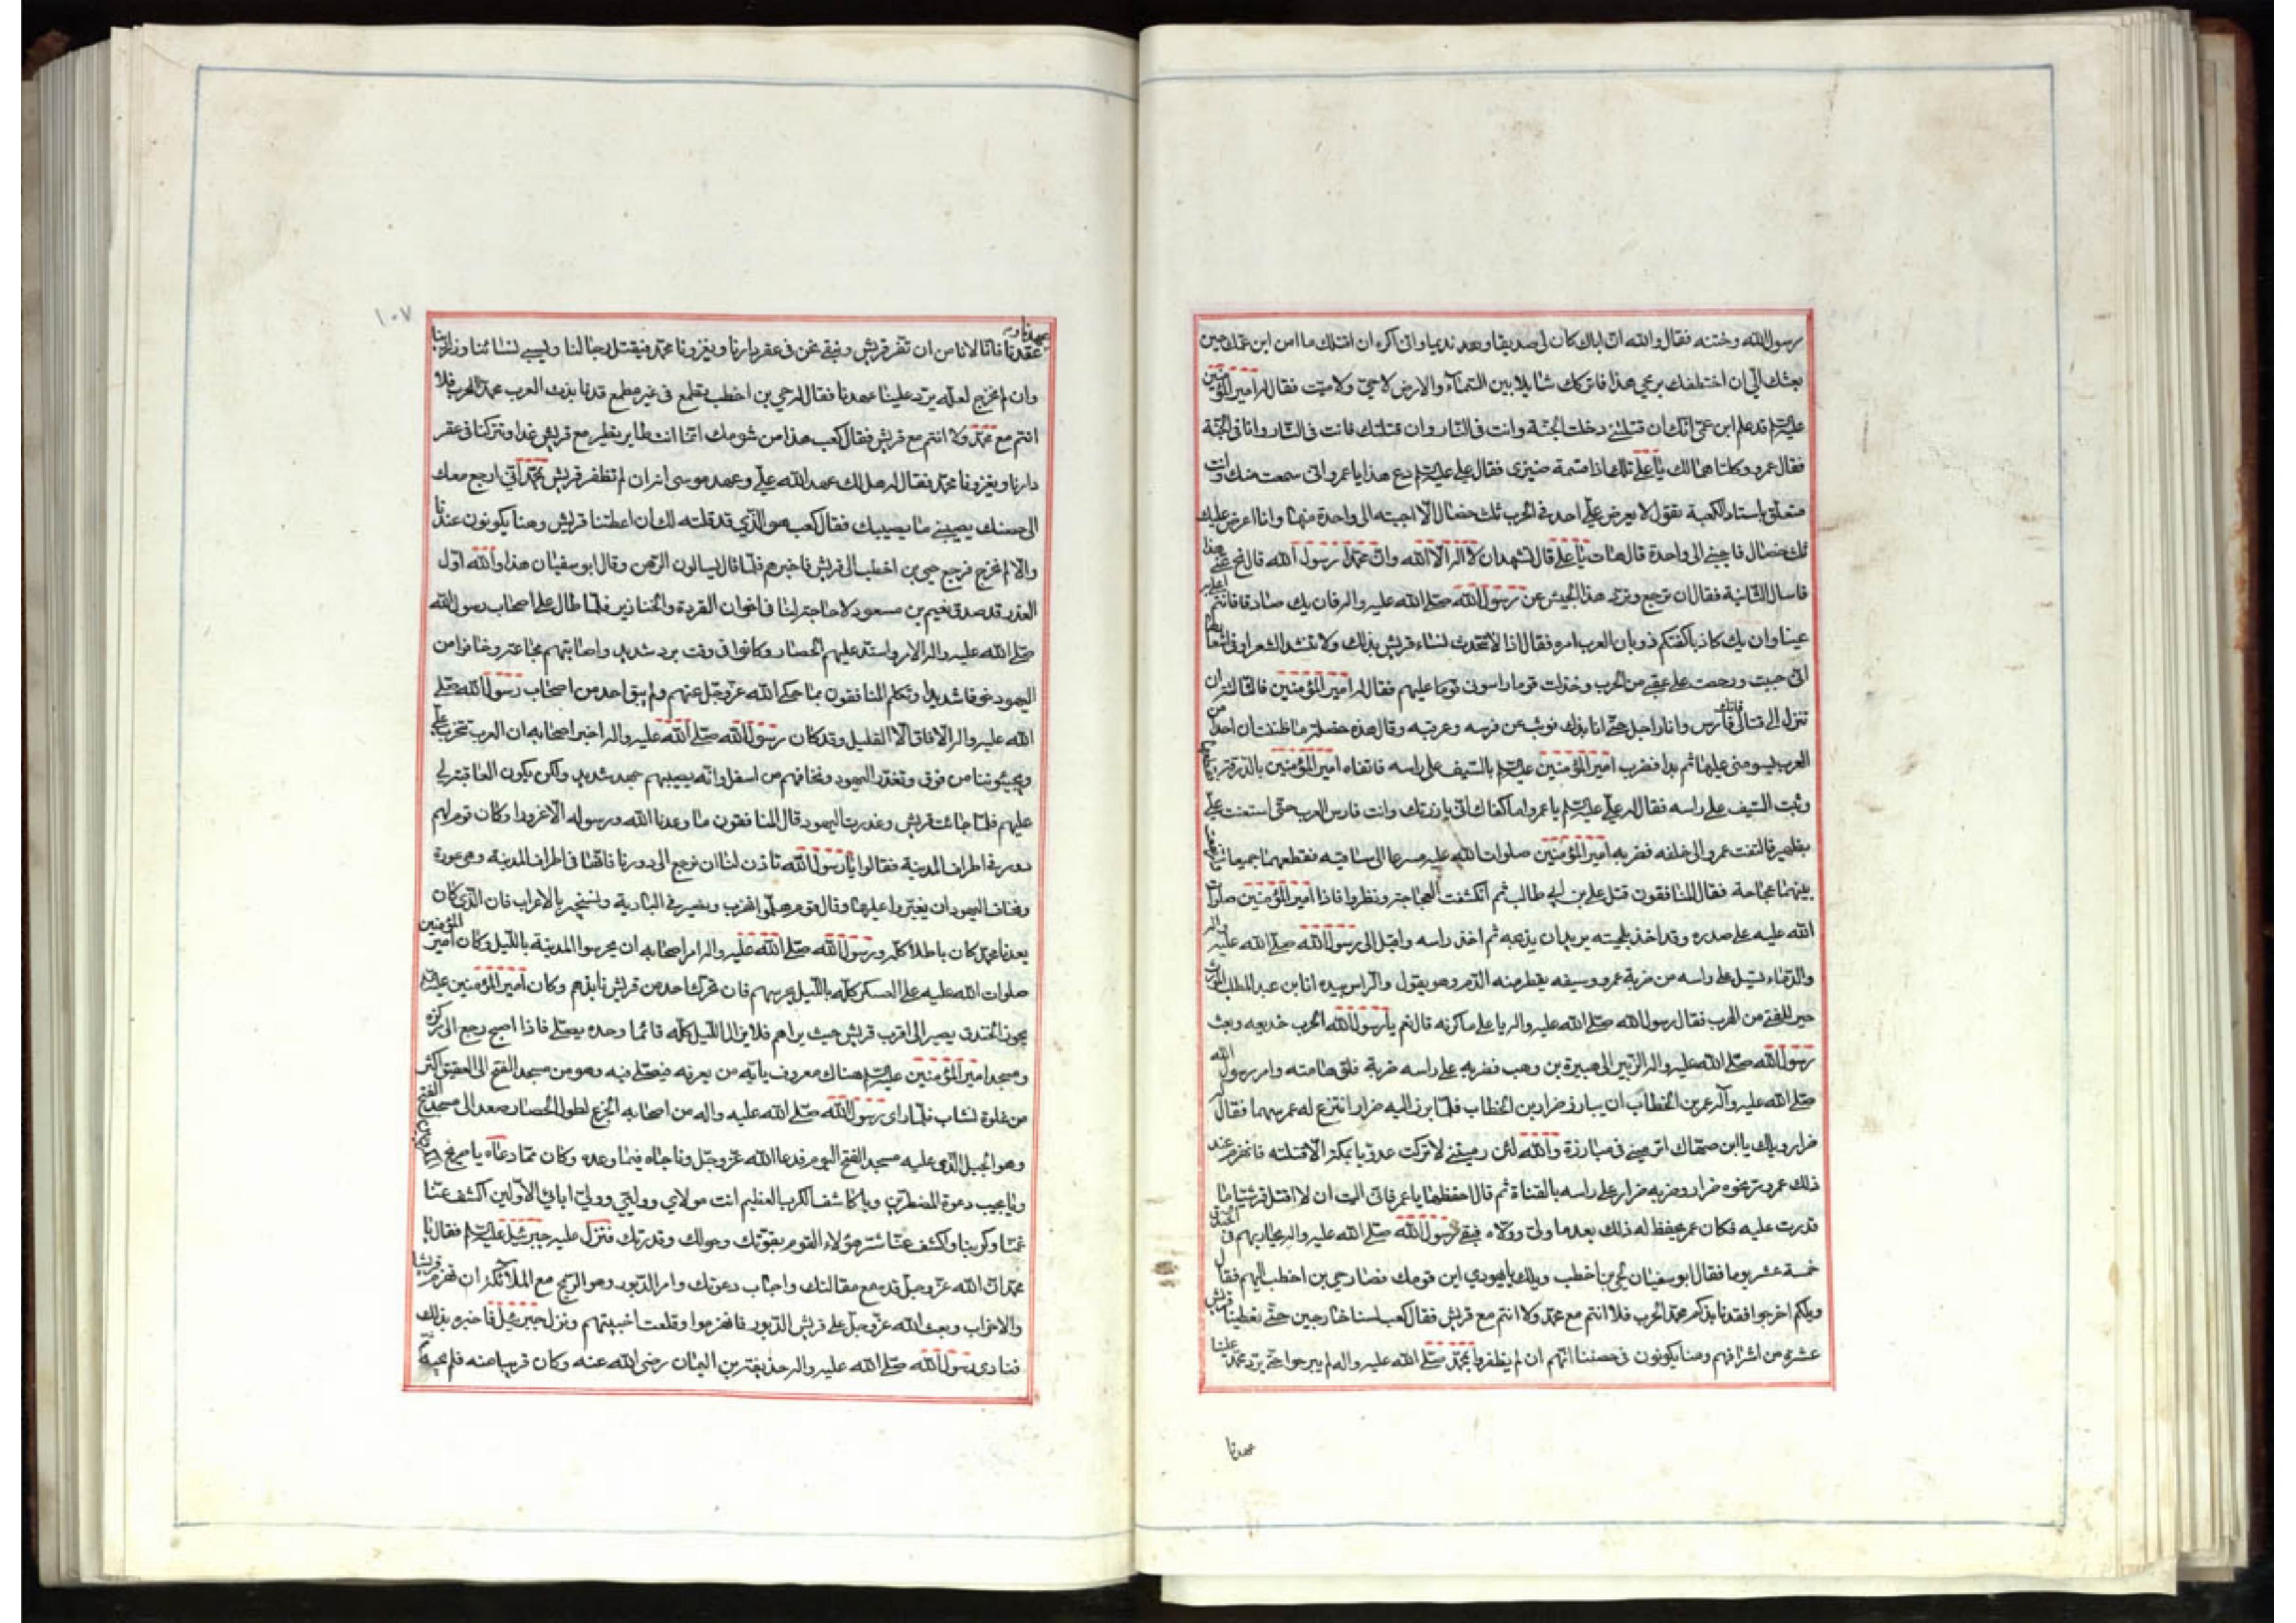 رسول الله وختنه فقال والله ان اباك كان لى صديقا وبعد نديما وانى اكره ان اقتلك ما امن ابن عمك حين
بعثك الى ان اختطفك برمحى هذا فاتركك شائلا بين السماء والارض لا حى ولا ميت فقال له امير المؤمنين
عليه السلم قد علم ابن عمى انك ان قتلتنى دخلت الجنة وانت فى النار وان قتلتك فانت فى النار وانا فى الجنة
فقال عمرو وكلتاهما لك يا على تلك اذا قسمة ضيزى فقال على عليه السلم دع هذا يا عمرو انى سمعت منك وانت
متعلق باستار الكعبة تقول لا يعرض على احد فى الحرب ثلث خصال الا اجبته الى واحدة منها وانا اعرض عليك
ثلث خصال فاجبنى الى واحدة قال هات يا على قال تشهد ان لا اله الا الله وان محمدا رسول الله قال نح عنى هذا
فاسال الثانية فقال ان ترجع وترد هذا الجيش عن رسول الله صلى الله عليه واله فان يك صادقا فانتم اعلى به
عينا وان يك كاذبا كفتكم ذوبان العرب امره فقال اذا لا تتحدث نساء قريش بذلك ولا تنشد الشعراء فى اشعارها
انى جبنت ورجعت على عقبى من الحرب وخذلت قوما راسونى عليهم فقال له امير المؤمنين فالثالثة ان
تنزل الى قتالى فانك فارس وانا راجل حتى انابذك فوثب عن فرسه وعرقبه وقال هذه خصلة ما ظننت ان احدا من
العرب يسومنى عليها ثم بدا فضرب امير المؤمنين عليه السلم بالسيف على راسه فاتقاه امير المؤمنين بالدرقة فقطعها
وثبت السيف على راسه فقال له على عليه السلم يا عمرو اما كفاك انى بارزتك وانت فارس العرب حتى استعنت على
بظهير فالتفت عمرو الى خلفه فضربه امير المؤمنين صلوات الله عليه مسرعا الى ساقيه فقطعهما جميعا وارتفعت
بينهما عجاجة فقال المنافقون قتل على بن ابى طالب ثم انكشفت العجاجة ونظروا فاذا امير المؤمنين صلوات
الله عليه على صدره وقد اخذ بلحيته يريد ان يذبحه ثم اخذ راسه واقبل الى رسول الله صلى الله عليه واله
والدماء تسيل على راسه من ضربة عمرو وسيفه يقطر منه الدم وهو يقول والراس بيده انا ابن عبد المطلب الموت
خير للفتى من الهرب فقال رسول الله صلى الله عليه واله يا على ماكرته قال نعم يا رسول الله الحرب خديعه وبعث
رسول الله صلى الله عليه واله الزبير الى هبيرة بن وهب فضربه على راسه ضربة فلق هامته وامر رسول الله
صلى الله عليه وآله عمر بن الخطاب ان يبارز ضرار بن الخطاب فلما برز اليه ضرار انتزع له عمر سهما فقال له
ضرار ويلك يا ابن صهاك اترمينى فى مبارزة والله لئن رميتنى لا تركت عدويا بمكة الا قتلته فانهزم عند
ذلك عمر ومر نحوه ضرار وضربه ضرار على راسه بالقناة ثم قال احفظها يا عمر فانى اليت ان لا اقتل قرشيا ما
قدرت عليه فكان عمر يحفظ له ذلك بعدما ولى وولاه فبقى رسول الله صلى الله عليه واله يحاربهم فى الخندق
خمسة عشر يوما فقال ابو سفيان لحى بن اخطب ويلك يا يهودي اين قومك فصار حى بن اخطب اليهم فقال
ويلكم اخرجوا فقد نابذكم محمد الحرب فلا انتم مع محمد ولا انتم مع قريش فقال كعب لسنا خارجين حتى تعطينا قريش
عشرة من اشرافهم رهنا يكونون فى حصننا انهم ان لم يظفروا بمحمد صلى الله عليه واله لم يبرحوا حتى يرد محمد علينا
عهدنا
١٠٧
عهدنا و
عقدنا فانا لا نامن ان تفر قريش ونبقى نحن فى عقر دارنا ويغزونا محمد فيقتل رجالنا ويسبى نسائنا وذرارينا
وان لم نخرج لعله يرد علينا عهدنا فقال له حى بن اخطب تطمع فى غير مطمع قد نابذت العرب محمدا الحرب فلا
انتم مع محمد ولا انتم مع قريش فقال كعب هذا من شومك انما انت طاير يطير مع قريش غدا وتتركنا فى عقر
دارنا ويغزونا محمد فقال له هل لك عهد الله على وعهد موسى انه ان لم تظفر قريش بمحمد انى ارجع معك
الى حصنك يصيبنى ما يصيبك فقال كعب هو الذي قد قلته لك ان اعطتنا قريش رهنا يكونون عندنا
والا لم نخرج فرجع حى بن اخطب الى قريش فاخبرهم فلما قال يسالون الرهن وقال ابو سفيان هذا والله اول
الغدر قد صدق نعيم بن مسعود لا حاجة لنا فى اخوان القردة والخنازير فلما طال على اصحاب رسول الله
صلى الله عليه واله الامر واشتد عليهم الحصار وكانوا فى وقت برد شديد واصابتهم مجاعة وخافوا من
اليهود خوفا شديدا وتكلم المنافقون بما حكى الله عز وجل عنهم ولم يبق احد من اصحاب رسول الله صلى
الله عليه واله الا نافق الا القليل وقد كان رسول الله صلى الله عليه واله اخبر اصحابه ان العرب تتحزب على
ويجيئوننا من فوق وتغدر اليهود ونخافهم من اسفل وانه يصيبهم جهد شديد ولكن يكون العاقبة لى
عليهم فلما جائت قريش وغدرت اليهود قال المنافقون ما وعدنا الله ورسوله الا غرورا وكان قوم لهم
دور فى اطراف المدينة فقالوا يا رسول الله تاذن لنا ان نرجع الى دورنا فانها فى اطراف المدينة وهى عورة
ونخاف اليهود ان يغيروا عليها وقال قوم هلموا فنهرب ونصير فى البادية ونستجير بالاعراب فان الذى كان
يعدنا محمد كان باطلا كله ورسول الله صلى الله عليه واله امر اصحابه ان يحرسوا المدينة بالليل وكان امير المؤمنين
صلوات الله عليه على العسكر كله بالليل يحرسهم فان تحرك احد من قريش نابذهم وكان امير المؤمنين عليه السلم
يجوز الخندق يصير الى اقرب قريش حيث يراهم فلا يزال الليل كله قائما وحده يصلى فاذا اصبح رجع الى مركزه
ومسجد امير المؤمنين عليه السلم هناك معروف ياتيه من يعرفه فيصلى فيه وهو من مسجد الفتح الى العقيق اكثر
من غلوة نشاب فلما راى رسول الله صلى الله عليه واله من اصحابه الجزع لطول الحصار صعد الى مسجد الفتح
وهو الجبل الذى عليه مسجد الفتح اليوم فدعا الله عز وجل وناجاه فيما وعده وكان مما دعاه يا صريخ المكروبين
ويا مجيب دعوة المضطرين ويا كاشف الكرب العظيم انت مولاي ووليي وولى ابائى الاولين اكشف عنا
غمنا وكربنا واكشف عنا شر هؤلاء القوم بقوتك وحولك وقدرتك فنزل عليه جبرئيل عليه السلم فقال يا
محمد ان الله عز وجل قد سمع مقالتك واجاب دعوتك وامر الدبور وهو الريح مع الملائكة ان تهزم قريشا
والاحزاب وبعث الله عز وجل على قريش الدبور فانهزموا وقلعت اخبيتهم ونزل جبرئيل فاخبره بذلك
فنادى رسول الله صلى الله عليه واله حذيفة بن اليمان رضى الله عنه وكان قريبا منه فلم يجبه